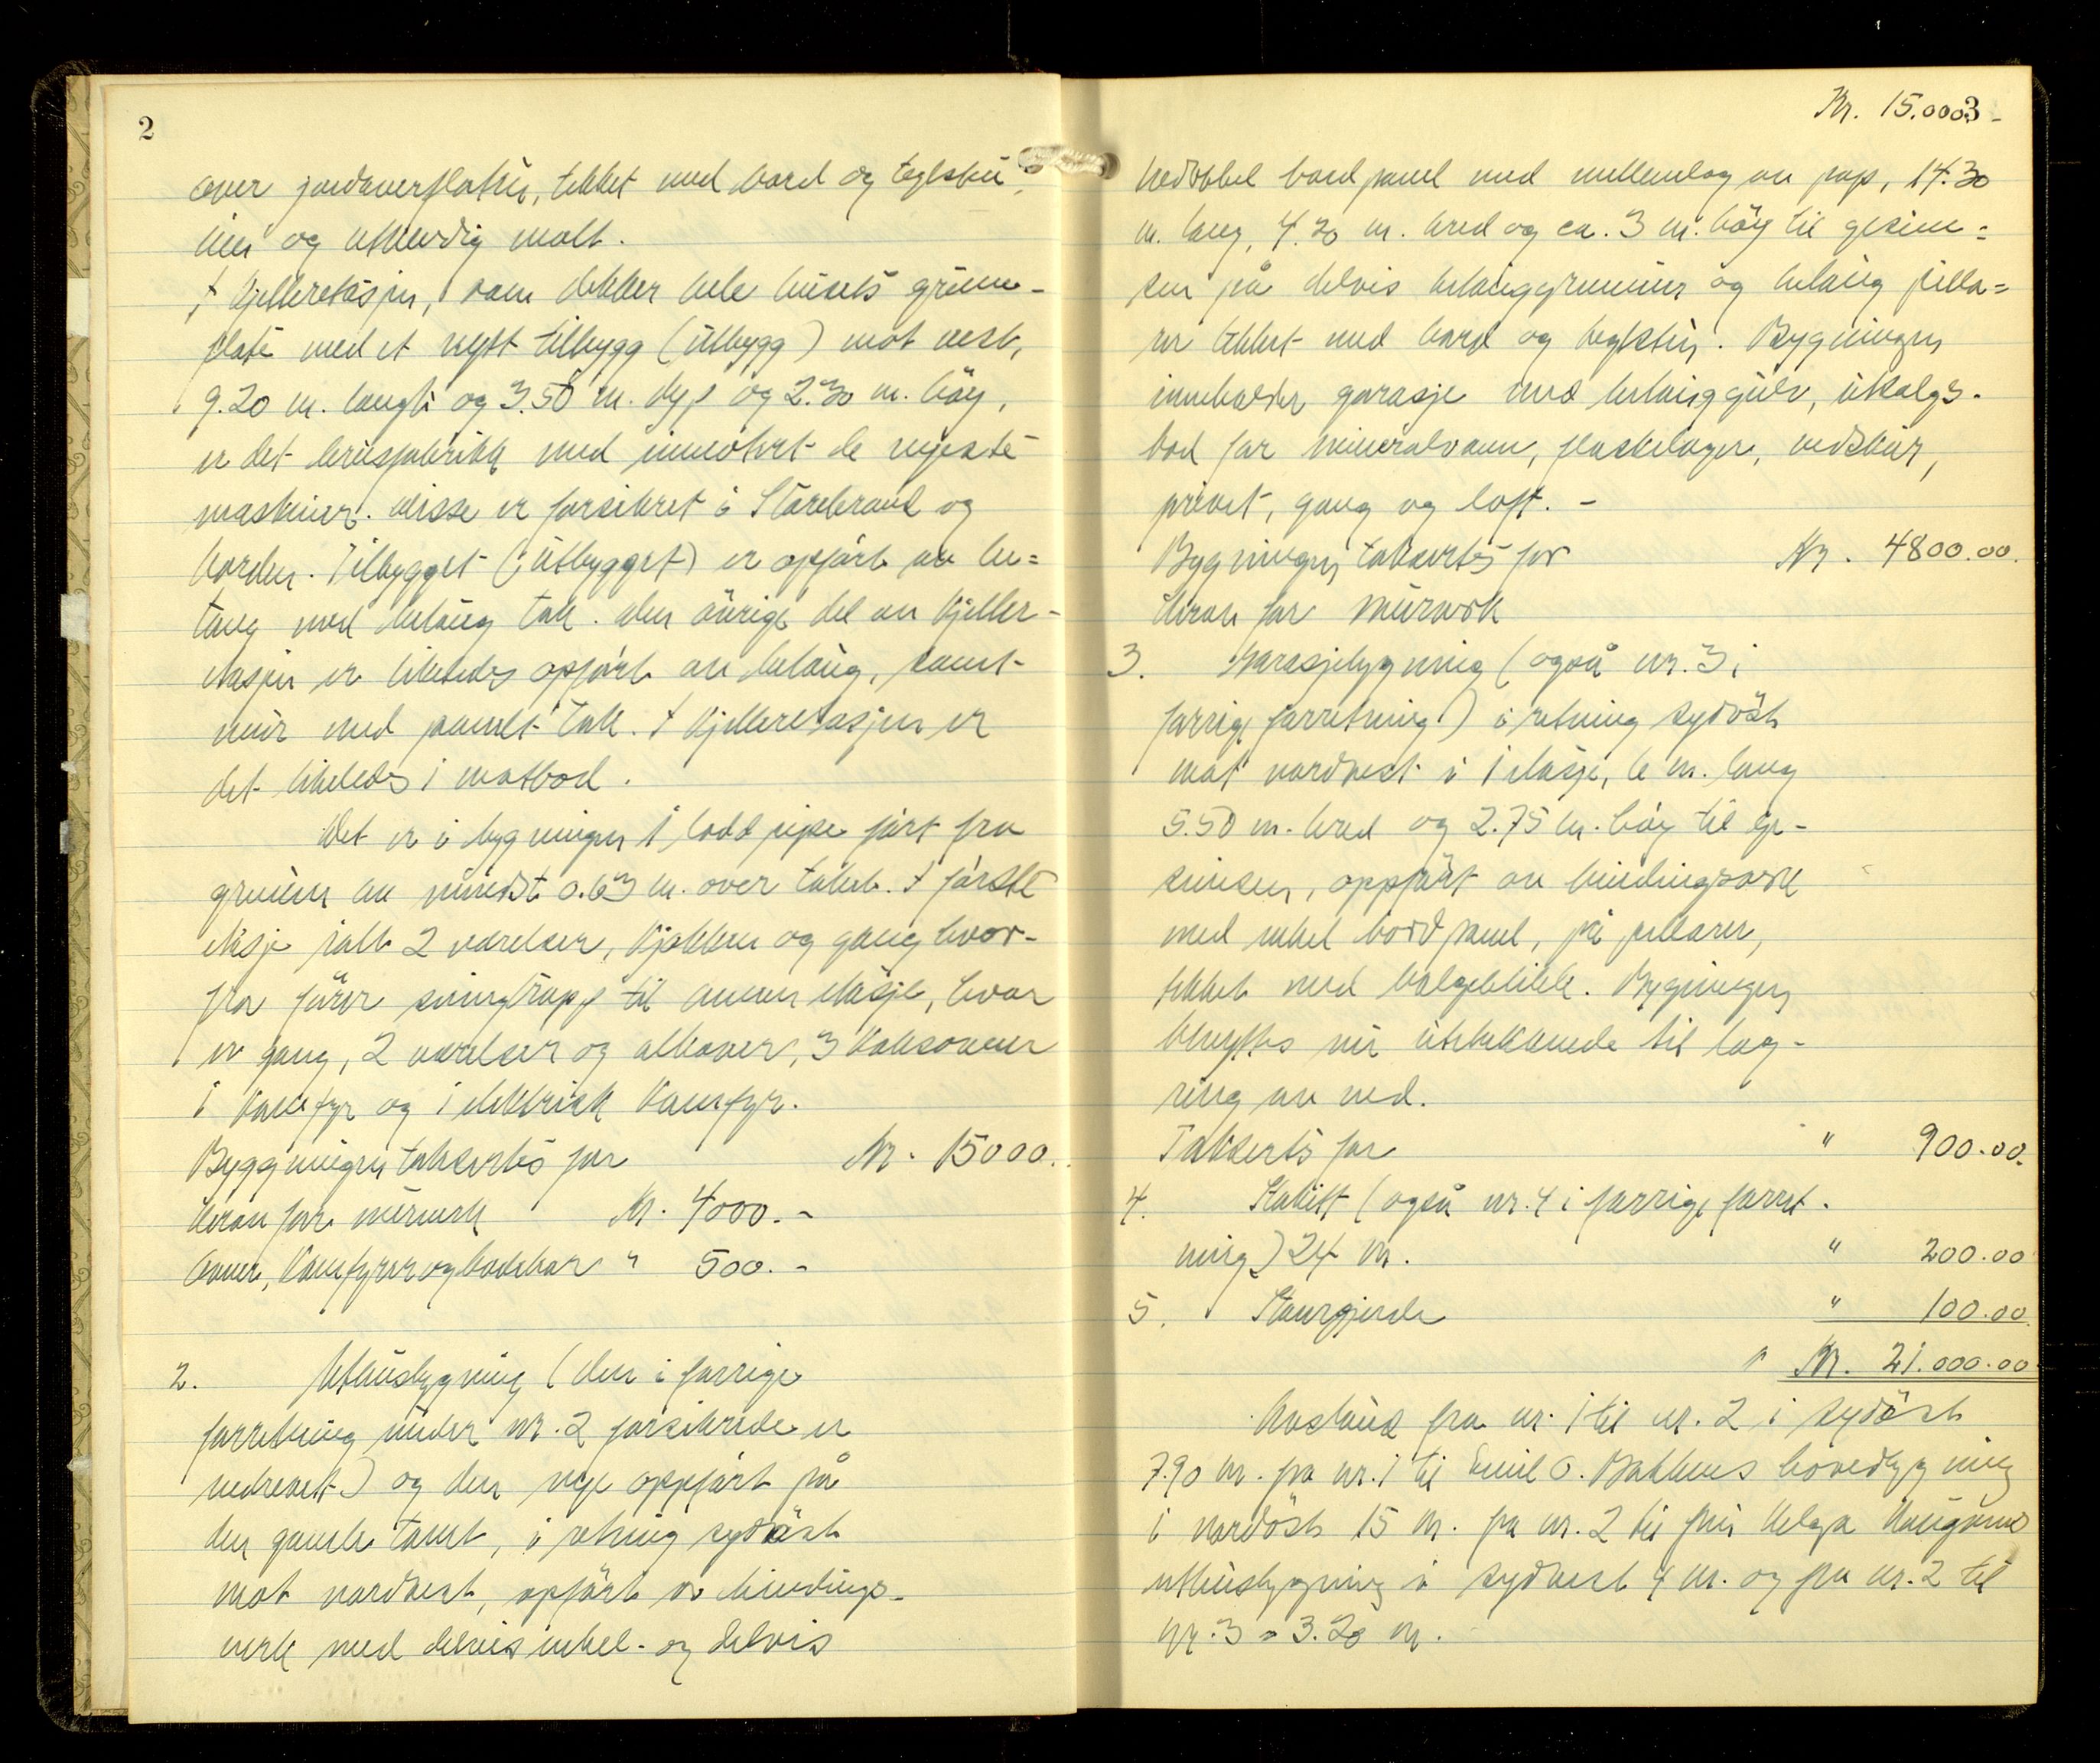 2
over jordoverflaten, tekket med bord og tegl
og utvendig malt.
I kjelleretasjen, som dekker hele husets grunn-
flate med et nytt tilbygg (utbygg) mot vest,
9.20 m. langt og 3.50 m. dyp og 2.30 m. høy,
er det brusfabrikk med innmontert de nyeste
maskiner. disse er forsikret i Storebrand og
Norden. Tilbygget (: utbygget) er opført av be=
tong med betong tak. den øvrige del av kjeller-
etasjen er likeledes opført av betong, samt
mur med panelt tak. I kjelleretasjen er
det likeledes 1 matbod.
Det er i bygningen 1 lodd pipe ført fra
grunnen av minst 0.63 m. over taket. I første
etasje ialt 2 værelser, kjøkken og gang hvor-
fra fører svingtrapp til annen etasje, hvor
er gang, 2 værelser og alkover, 3 kakkelovner
1 komfyr og 1 elektrisk komfyr.
Byggningen taksertes for Kr. 15000.
Herav for murverk Kr. 4000.-
Ovner, komfyrer og badekar " 500.-
2. Uthusbygning (den i forrige
forretning under nr. 2 forsikrede er
nedrevet) og den nye oppført på
den gamle tomt, i retning sydøst
mot nordvest, opført av bindings-
verk med delvis enkel- og delvis
Kr. 15.000.-
3
dobbel bord panel med mellemlag av pap, 14.30
m. lang, 4.20 m. bred og ca. 3 m. høy til gesim=
sen på delvis betonggrunnmur og betong pilla=
rer tekket med bord og teglsten. Bygningen
inneholder garasje med betonggulv, utsalgs-
bod for mineralvann, flaskelager, vedskur,
privet, gang og loft. -
Bygningen taksertes for Kr. 4800.00.
Herav for murverk
3. Garasjebygning (også nr. 3 i
forrige forretning) i retning sydøst
mot nordvest i 1 etasje, 6 m. lang
5.50 m. bred og 2.75 m. høy til ge-
simsen, oppført av bindingsverk
med enkel bord panel, på pillarer,
tekket med bølgeblikk. Bygningen
benyttes nu utelukkende til lag-
ring av ved.
Taksertes for " 900.00.
4. Stakitt (også nr. 4 i forrige forret-
ning) 24 m. " 200.00
5. Staurgjerde " 100.00.
Kr. 21.000.00
Avstand fra nr. 1 til nr. 2 i sydøst
7.90 m. fra nr. 1 til Emil O. Bakkens hovedbygning
i nordøst 15 m. fra nr. 2 til fru Helga
uthusbygning i sydvest 4 m. og fra nr. 2 til
nr. 3 = 3.20 m.